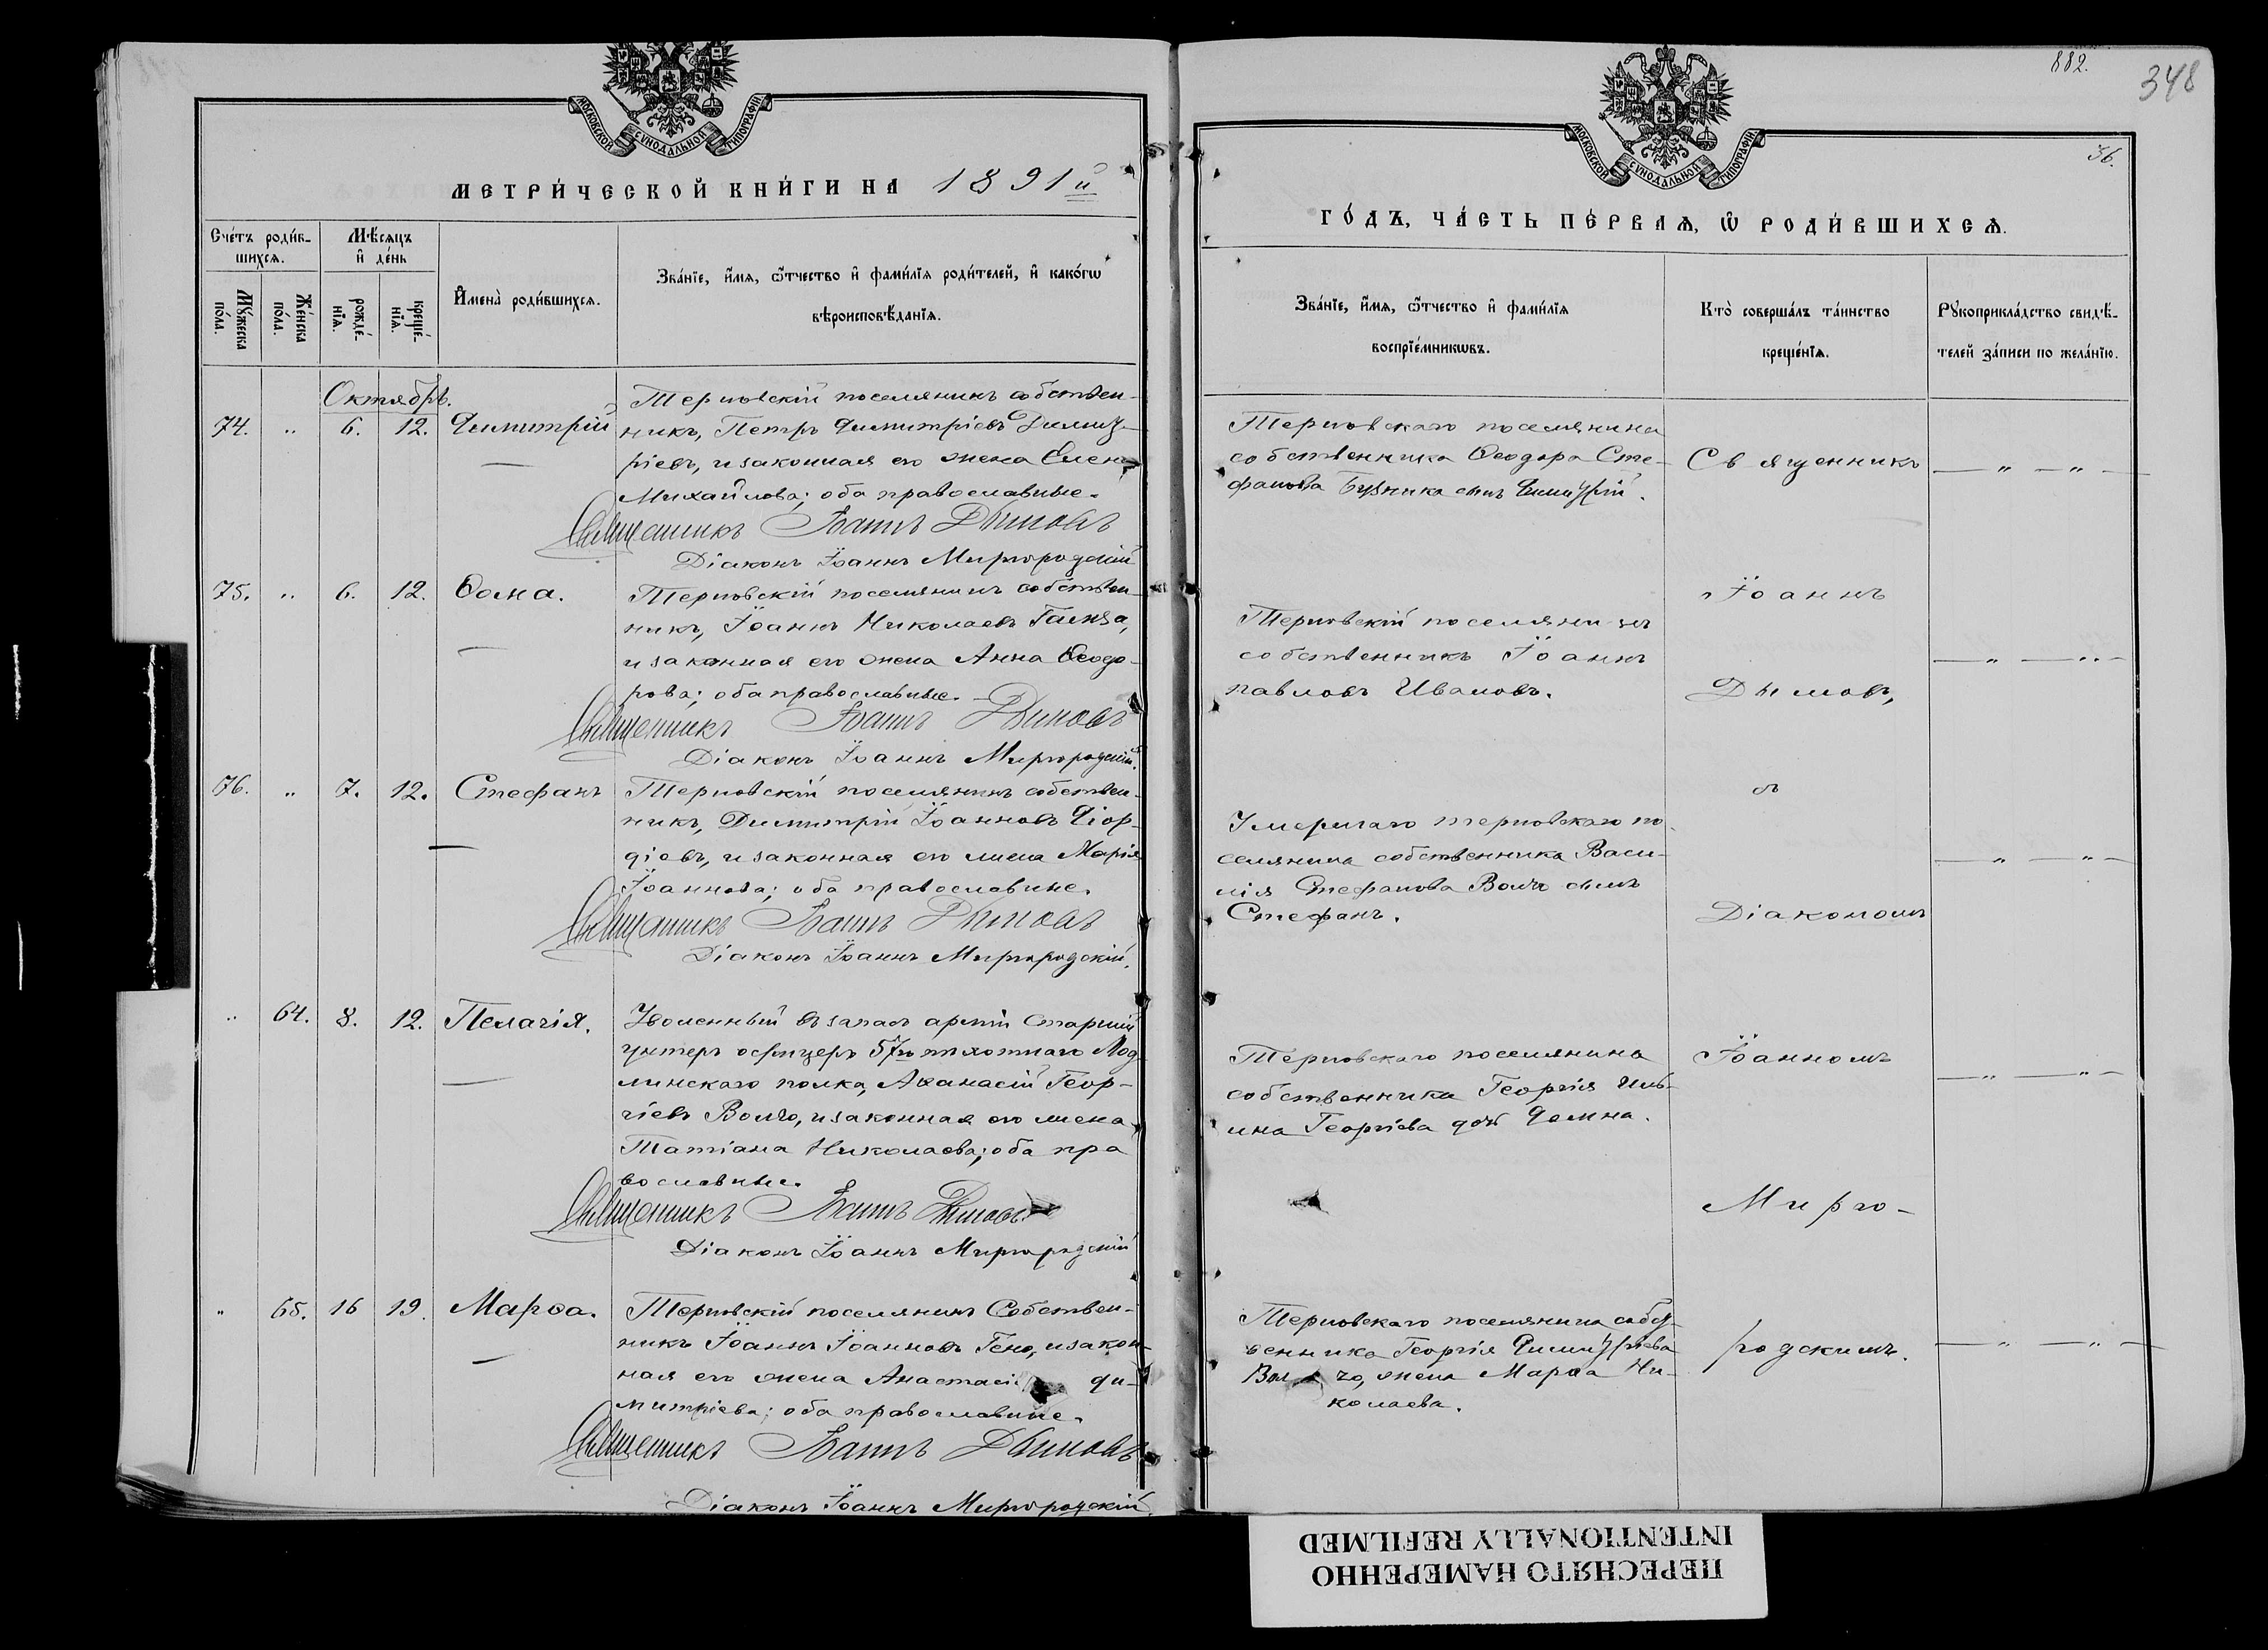 882.
348
36.
МОСКОВСКОЙ СѴНОДАЛЬНОЙ ТИПОГРАФІИ
МЕТРИ́ЧЕСКОЙ КНИ́ГИ НА 1891й
Сче́тъ роди́в-
шихсѧ.
Мꙋ́жеска
по́ла.
Же́нска
по́ла.
Мѣ́сѧцъ
и҆ де́нь
рожде́-
нїѧ.
креще́-
нїѧ.
И҆мена̀ роди́вшихсѧ.
Зва́нїе, и҆́мѧ, ѻ҆́тчество и҆ фами́лїѧ роди́телей, и҆ како́гѡ
вѣроисповѣ́данїѧ.
Октябрь.
74. „ 6. 12. Димитрій
Терновскій поселянинъ собствен-
никъ, Петръ Димитріевъ Димит-
ріевъ, и законная его жена Елена
Михайлова; оба православные.
Священникъ Іоаннъ Дымовъ
Діаконъ Іоаннъ Миргородскій
75. „ 6. 12. Ѳома.
Терновскій поселянинъ собствен-
никъ, Іоаннъ Николаевъ
и законная его жена Анна Ѳеодо-
рова; оба православные.
Священникъ Іоаннъ Дымовъ
Діаконъ Іоаннъ Миргородскій.
76. „ 7. 12. Стефанъ
Терновскій поселянинъ собствен-
никъ, Димитрій Іоанновъ Діор-
діевъ, и законная его жена Марія
Іоаннова; оба православные.
Священникъ Іоаннъ Дымовъ
Діаконъ Іоаннъ Миргородскій.
„ 64. 8. 12. Пелагія.
Уволенный въ запасъ арміи Старшій
унтеръ офицеръ 57го пѣхотнаго Мод-
линскаго полка, Аѳанасій Геор-
гіевъ Волчо, и законная его жена
Татіана Николаева; оба пра
вославные.
Священникъ Іоаннъ Дымовъ
Діаконъ Іоаннъ Миргородскій
„ 65. 16 19. Марѳа.
Терновскій поселянинъ Собствен-
никъ Іоаннъ Іоанновъ Гено, и закон-
ная его жена Анастасі ди-
митріева; оба православные.
Священникъ Іоаннъ Дымовъ
Діаконъ Іоаннъ Миргородскій
МОСКОВСКОЙ СѴНОДАЛЬНОЙ ТИПОГРАФІИ
ГО́ДЪ, ЧА́СТЬ ПЕ́РВАѦ, Ѡ҆ РОДИ́ВШИХСѦ.
Зва́нїе, и҆́мѧ, ѻ҆́тчество и҆ фами́лїѧ
воспрїе́мникѡвъ.
Кто̀ соверша́лъ та́инство
креще́нїѧ.
Рꙋкоприкла́дство свидѣ́-
телей за́писи по жела́нїю.
Терновскаго поселянина
собственника Ѳеодора Сте-
фанова сынъ Димитрій.
Терновскій поселянинъ
собственникъ Іоаннъ
Павловъ Ивановъ.
Умершаго терновскаго по-
селянина собственника Васи-
лія Стефанова Волчо сынъ
Стефанъ.
Терновскаго поселянина
собственника Георгія Иль-
ина Георгіева дочь Домна.
Терновскаго поселянина собст-
венника Георгія Димитріева
Вол чо, жена Марѳа Ни-
колаева.
Священникъ
Іоаннъ
Дымовъ,
съ
Діакономъ
Іоанномъ
Мирго-
родскимъ.
ПЕРЕСНЯТО НАМЕРЕННО
INTENTIONALLY REFILMED